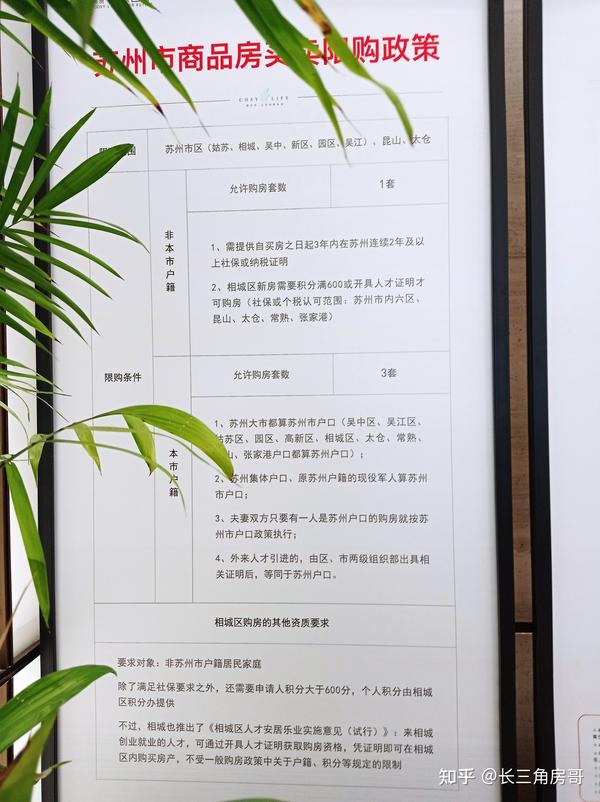 苏州市商品房买卖限购政策
COZY LIFE
围
苏州市区（姑苏、相城、吴中、新区、园区、吴江）、昆山、太仓
限购条件
非本市户籍
允许购房套数
1套
1、需提供自买房之日起3年内在苏州连续2年及以
上社保或纳税证明
2、相城区新房需要积分满600或开具人才证明才
可购房（社保或个税认可范围：苏州市内六区、
昆山、太仓、常熟、张家港）
本市户籍
允许购房套数
3套
1、苏州大市都算苏州市户口（吴中区、吴江区、
姑苏区、园区、高新区、相城区、太仓、常熟、
山、张家港户口都算苏州户口）；
2、苏州集体户口、原苏州户籍的现役军人算苏州
市户口；
3、夫妻双方只要有一人是苏州户口的购房就按苏
州市户口政策执行；
4、外来人才引进的，由区、市两级组织部出具相
关证明后，等同于苏州户口。
相城区购房的其他资质要求
要求对象：非苏州市户籍居民家庭
除了满足社保要求之外，还需要申请人积分大于600分，个人积分由相城
区积分办提供
不过，相城也推出了《相城区人才安居乐业实施意见（试行）》：来相城
创业就业的人才，可通过开具人才证明获取购房资格，凭证明即可在相城
区内购买房产，不受一般购房政策中关于户籍、积分等规定的限制
知乎 @长三角房哥